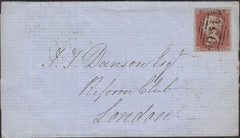 J. T. Danson Esqr
Reform Club
London